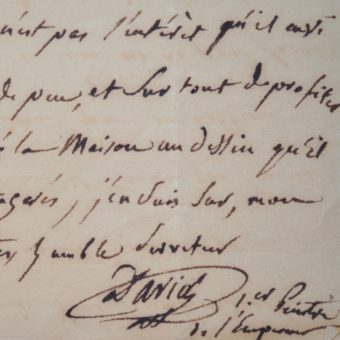 n'est pas l'intérêt qu'il
de peu, et Sur tout de profiter
la Maison au dessin qu'il
j'en suis Sur, mon
humble Serviteur
David 1.er Peintre
de l'Empereur